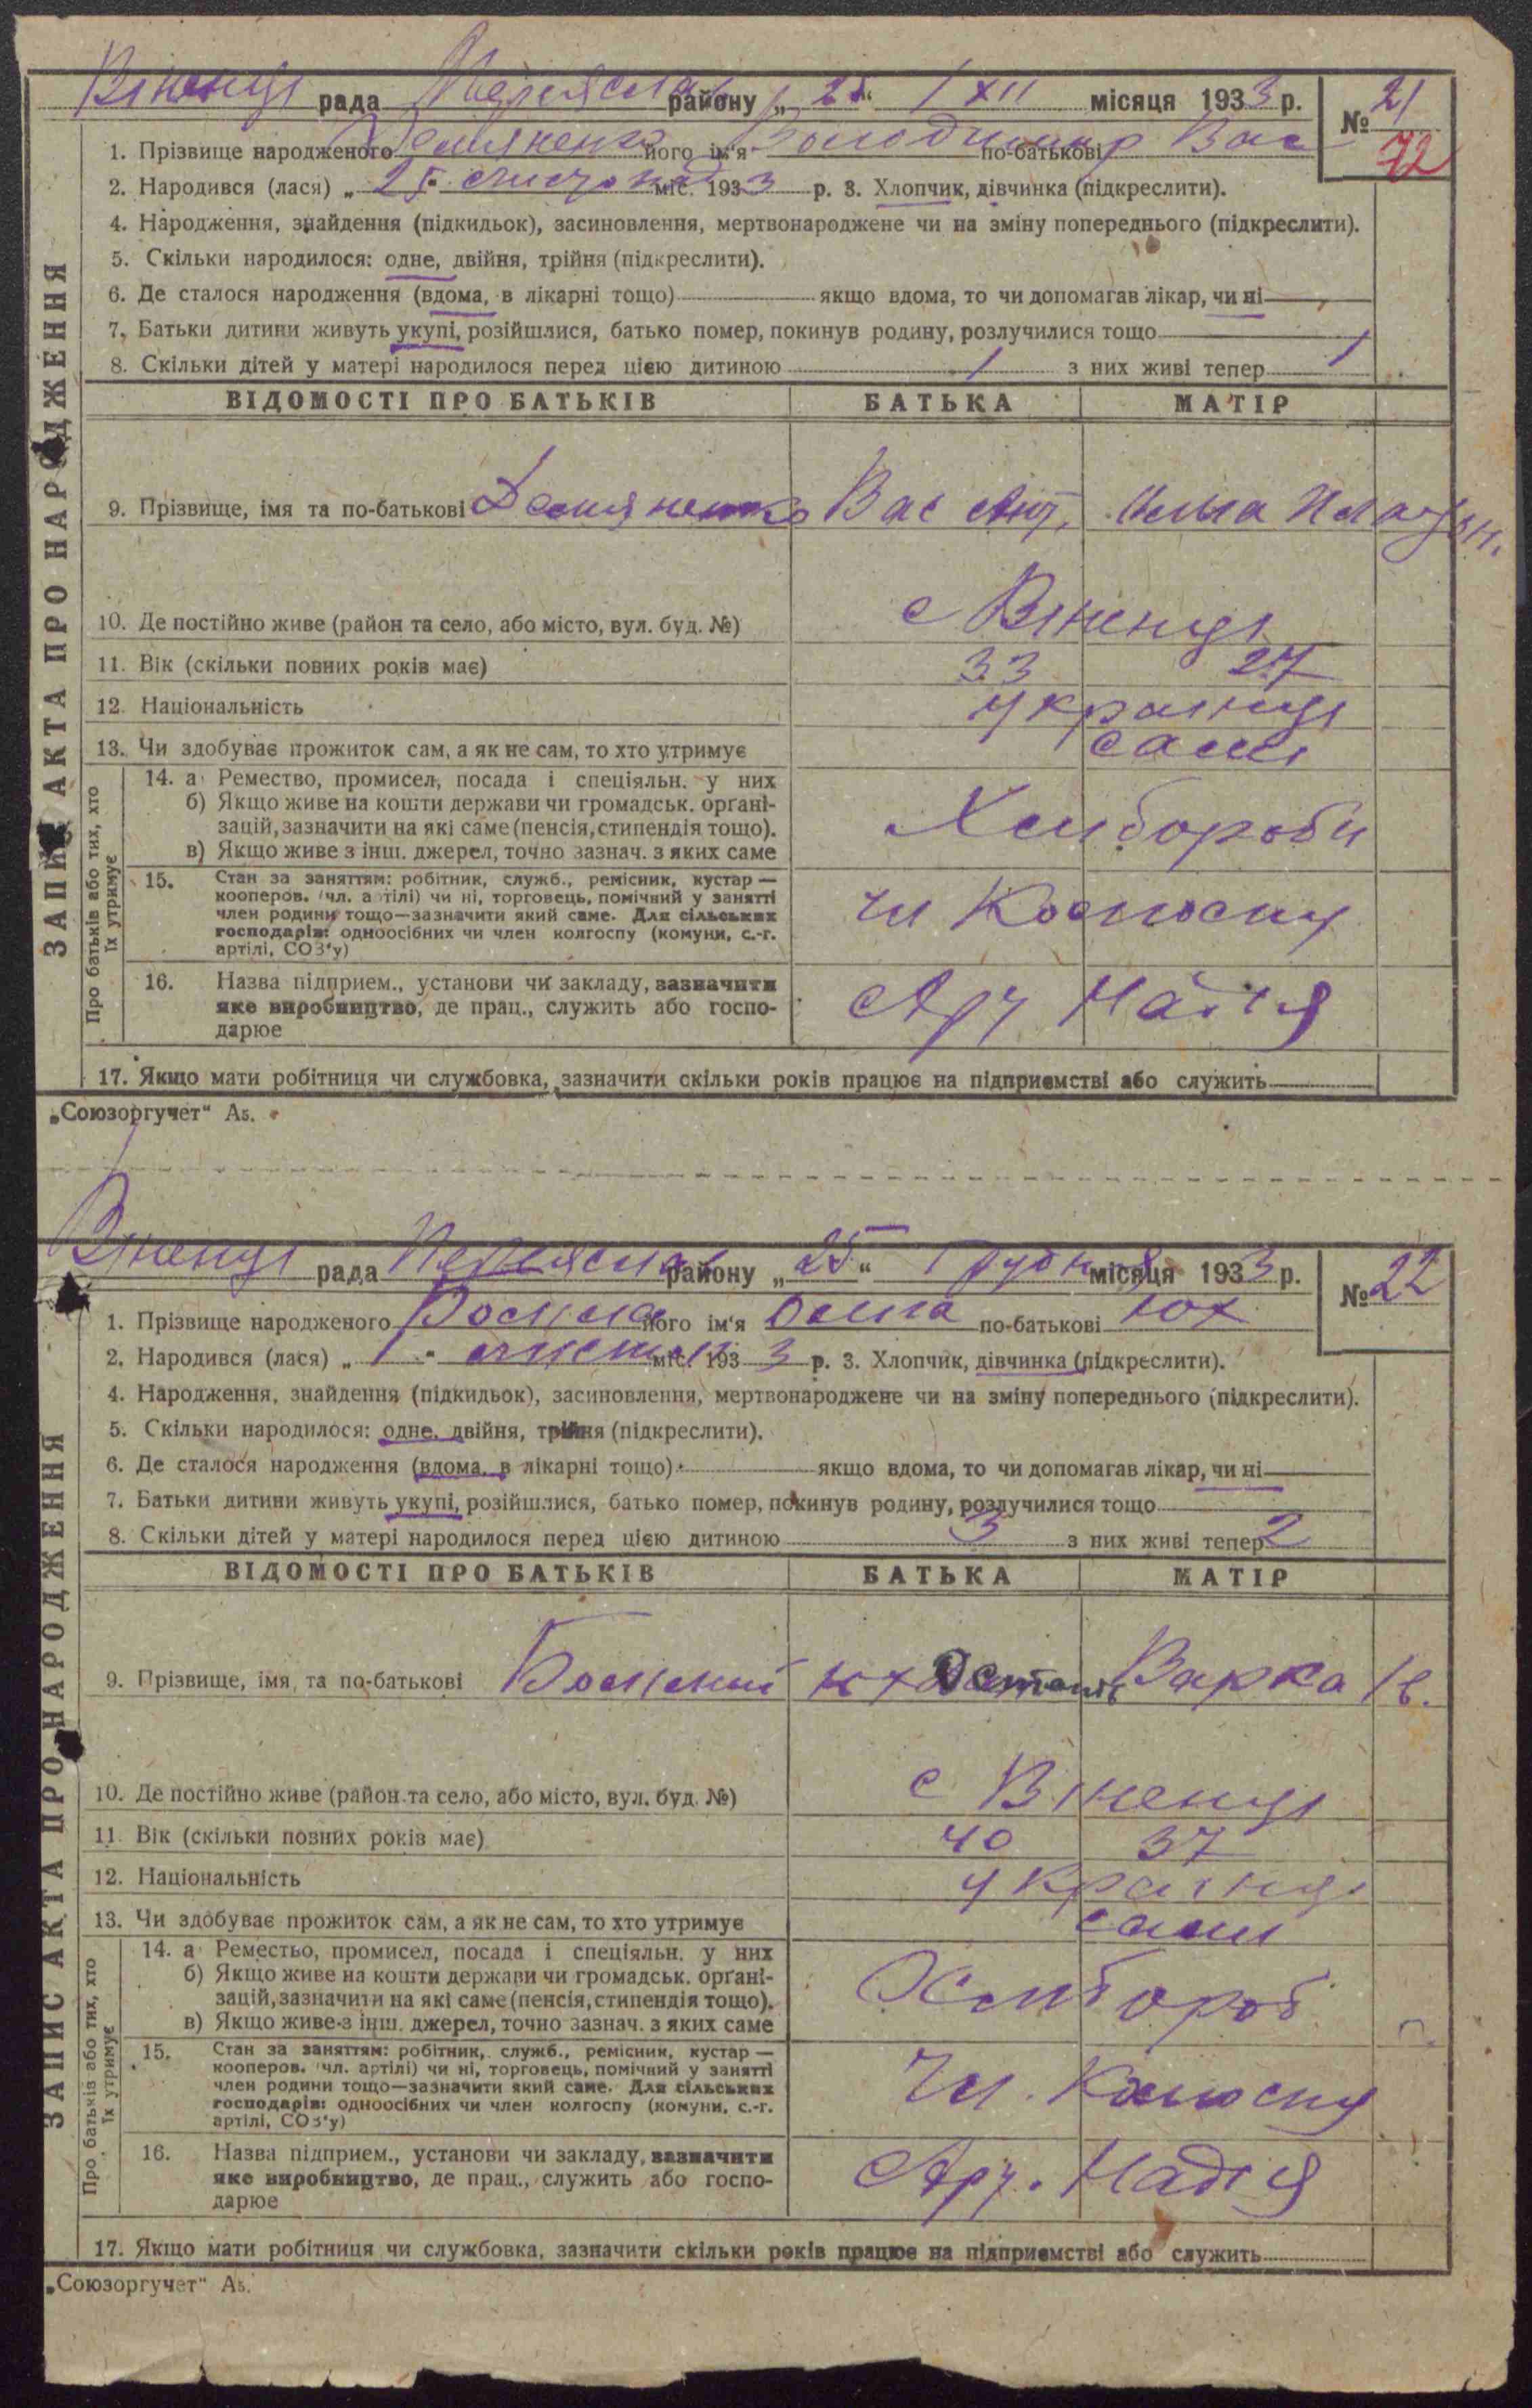 Віненці рада Переяслав району „25“ XII місяця 1933 р. № 21
72
1. Прізвище народженого Демяненко його ім'я Володимир по-батькові Вас
2. Народився (лася) „25“ листопад міс. 1933 р. 3. Хлопчик, дівчинка (підкреслити).
4. Народження, знайдення (підкидьок), засиновлення, мертвонароджене чи на зміну попереднього (підкреслити).
5. Скільки народилося: одне, двійня, трійня (підкреслити).
6. Де сталося народження (вдома, в лікарні тощо) якщо вдома, то чи допомагав лікар, чи ні
7. Батьки дитини живуть укупі, розійшлися, батько помер, покинув родину, розлучилися тощо
8. Скільки дітей у матері народилося перед цією дитиною 1 з них живі тепер 1
ЗАПИС АКТА ПРО НАРОДЖЕННЯ
ВІДОМОСТІ ПРО БАТЬКІВ БАТЬКА МАТІР
9. Прізвище, імя та по-батькові Демяненко Вас Ант.
10. Де постійно живе (район та село, або місто, вул. буд. №) с Віненці
11. Вік (скільки повних років має) 33 27
12. Національність українці
13. Чи здобуває прожиток сам, а як не сам, то хто утримує сами
Про батьків або тих, хто їх утримує
14. а Ремество, промисел, посада і спеціяльн. у них
б) Якщо живе на кошти держави чи громадськ. орґані-
зацій, зазначити на які саме (пенсія, стипендія тощо).
в) Якщо живе з інш. джерел, точно зазнач. з яких саме
Хлібороби
15. Стан за заняттям: робітник, служб., ремісник, кустар —
кооперов. (чл. артілі) чи ні, торговець, помічний у занятті
член родини тощо—зазначити який саме. Для сільських
господарів: одноосібних чи член колгоспу (комуни, с.-г.
артілі, СОЗ'у)
чл Колгоспу
16. Назва підприєм., установи чи закладу, зазначити
яке виробництво, де прац., служить або госпо-
дарює
Арт Надія
17. Якщо мати робітниця чи службовка, зазначити скільки років працює на підприємстві або служить
„Союзоргучет“ А5.
Віненці рада Переяслав району „25“ Грудня місяця 1933 р. № 22
1. Прізвище народженого його ім'я Ольга по-батькові Юх
2. Народився (лася) „1“ міс. 1933 р. 3. Хлопчик, дівчинка (підкреслити).
4. Народження, знайдення (підкидьок), засиновлення, мертвонароджене чи на зміну попереднього (підкреслити).
5. Скільки народилося: одне, двійня, трійня (підкреслити).
6. Де сталося народження (вдома, в лікарні тощо) якщо вдома, то чи допомагав лікар, чи ні
7. Батьки дитини живуть укупі, розійшлися, батько помер, покинув родину, розлучилися тощо
8. Скільки дітей у матері народилося перед цією дитиною 3 з них живі тепер 2
ЗАПИС АКТА ПРО НАРОДЖЕННЯ
ВІДОМОСТІ ПРО БАТЬКІВ БАТЬКА МАТІР
9. Прізвище, імя та по-батькові Юх Варка Ів.
10. Де постійно живе (район та село, або місто, вул. буд. №) с Віненці
11. Вік (скільки повних років має) 40 37
12. Національність українці
13. Чи здобуває прожиток сам, а як не сам, то хто утримує сами
Про батьків або тих, хто їх утримує
14. а Реместьо, промисел, посада і спеціяльн. у них
б) Якщо живе на кошти держави чи громадськ. орґані-
зацій, зазначити на які саме (пенсія, стипендія тощо).
в) Якщо живе з інш. джерел, точно зазнач. з яких саме
Хлібороб
15. Стан за заняттям: робітник, служб., ремісник, кустар —
кооперов. (чл. артілі) чи ні, торговець, помічний у занятті
член родини тощо—зазначити який саме. Для сільських
господарів: одноосібних чи член колгоспу (комуни, с.-г.
артілі, СОЗ'у)
Чл. Колгоспу
16. Назва підприєм., установи чи закладу, зазначити
яке виробництво, де прац., служить або госпо-
дарює
Арт. Надія
17. Якщо мати робітниця чи службовка, зазначити скільки років працює на підприємстві або служить
„Союзоргучет“ А5.